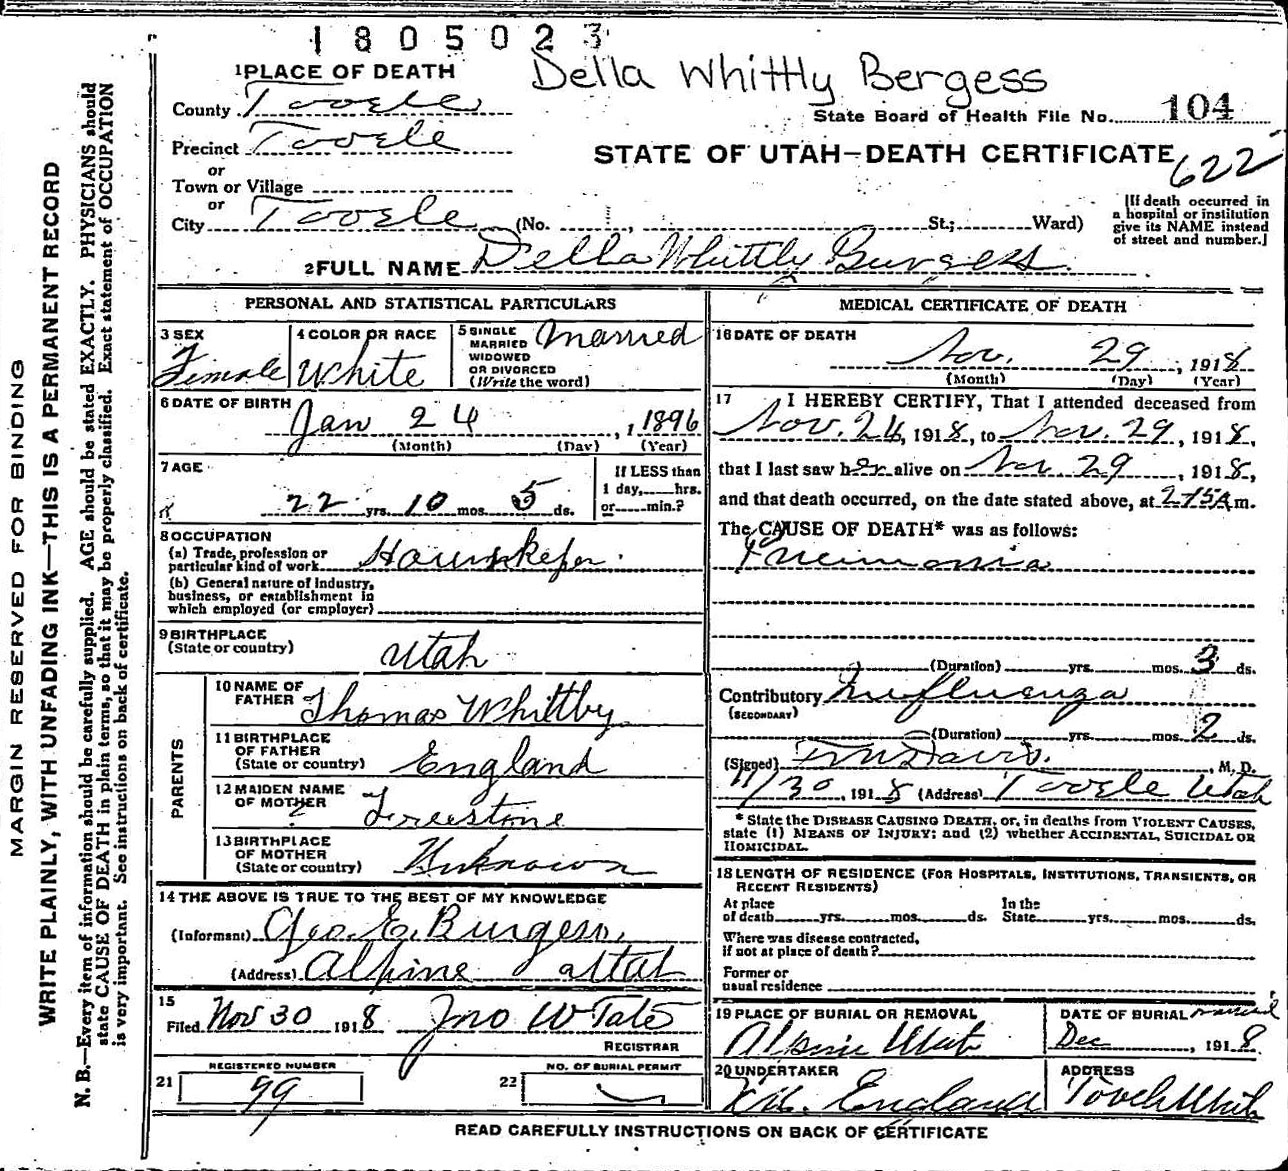 1805023
Della Whittly Bergess
1 PLACE OF DEATH
County Tooele
State Board of Health File No. 104
Precinct Tooele
STATE OF UTAH—DEATH CERTIFICATE
622
or
Town or Village
or
City Tooele (No. , St.; Ward)
[If death occurred in
a hospital or institution
give its NAME instead
of street and number.]
2 FULL NAME Della Whittly Burgess
PERSONAL AND STATISTICAL PARTICULARS
3 SEX
Female
4 COLOR OR RACE
White
5 SINGLE
MARRIED
WIDOWED
OR DIVORCED
(Write the word)
Married
6 DATE OF BIRTH
Jan 24, 1896
(Month) (Day) (Year)
7 AGE
22 yrs. 10 mos. 5 ds.
If LESS than
1 day, hrs.
or min.?
8 OCCUPATION
(a) Trade, profession or
particular kind of work
(b) General nature of industry,
business, or establishment in
which employed (or employer)
9 BIRTHPLACE
(State or country)
Utah
PARENTS
10 NAME OF
FATHER Thomas Whittby
11 BIRTHPLACE
OF FATHER
(State or country) England
12 MAIDEN NAME
OF MOTHER
? Freestone
13 BIRTHPLACE
OF MOTHER
(State or country) Unknown
14 THE ABOVE IS TRUE TO THE BEST OF MY KNOWLEDGE
(Informant) Geo. E. Burgess.
(Address) Alpine Utah
15
Filed Nov 30 1918 Jno W Tate
REGISTRAR
21 REGISTERED NUMBER
99
22 NO. OF BURIAL PERMIT
MEDICAL CERTIFICATE OF DEATH
16 DATE OF DEATH
Nov. 29, 1918
(Month) (Day) (Year)
17 I HEREBY CERTIFY, That I attended deceased from
Nov. 26, 1918, to Nov. 29, 1918,
that I last saw her alive on Nov. 29, 1918,
and that death occurred, on the date stated above, at 215 A m.
The CAUSE OF DEATH* was as follows:
Pneumonia
(Duration) yrs. mos. 3 ds.
Contributory Influenza
(SECONDARY)
(Duration) yrs. mos. 2 ds.
(Signed) Davis. M. D.
11/30, 1918 (Address) Tooele Utah
* State the DISEASE CAUSING DEATH, or, in deaths from VIOLENT CAUSES,
state (1) MEANS OF INJURY; and (2) whether ACCIDENTAL, SUICIDAL OR
HOMICIDAL.
18 LENGTH OF RESIDENCE (FOR HOSPITALS, INSTITUTIONS, TRANSIENTS, OR
RECENT RESIDENTS)
At place
of death yrs. mos. ds.
In the
State yrs. mos. ds.
Where was disease contracted,
if not at place of death?
Former or
usual residence
19 PLACE OF BURIAL OR REMOVAL
Alpine Utah
DATE OF BURIAL
Dec , 1918
20 UNDERTAKER
England
ADDRESS
Tooele Utah
READ CAREFULLY INSTRUCTIONS ON BACK OF CERTIFICATE
MARGIN RESERVED FOR BINDING
WRITE PLAINLY, WITH UNFADING INK—THIS IS A PERMANENT RECORD
N. B.—Every item of information should be carefully supplied. AGE should be stated EXACTLY. PHYSICIANS should
state CAUSE OF DEATH in plain terms, so that it may be properly classified. Exact statement of OCCUPATION
is very important. See instructions on back of certificate.